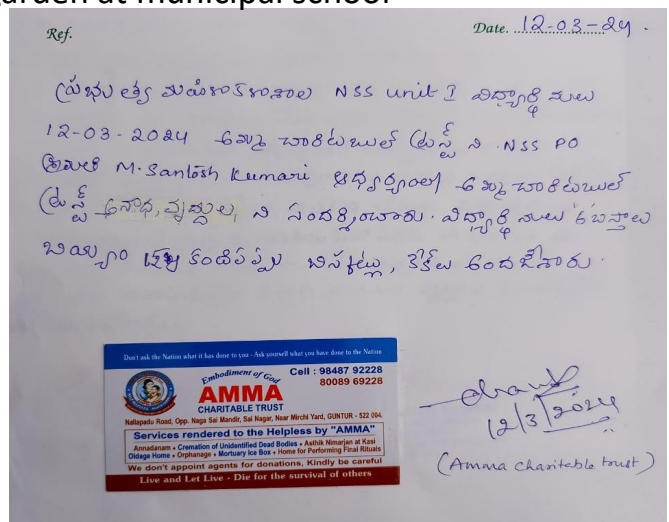 garden at municipal school
Ref.
Date. 12-03-24.
ప్రభుత్వ మహిళా కళాశాల NSS unit I విద్యార్థినులు
12-03-2024 అమ్మ చారిటబుల్ ట్రస్ట్ ని NSS PO
శ్రీమతి M. Santosh Kumari ఆధ్వర్యంలో అమ్మ చారిటబుల్
ట్రస్ట్ అనాధ, వృద్దుల, ని సందర్శించారు. విద్యార్థినులు 6 బస్తాలు
బియ్యం కందిపప్పు బిస్కట్లు, కేక్‌లు అందజేశారు.
Don't ask the Nation what it has done to you - Ask yourself what you have done to the Nation
Embodiment of God
Cell : 98487 92228
80089 69228
AMMA
CHARITABLE TRUST
Nallapadu Road, Opp. Naga Sai Mandir, Sai Nagar, Near Mirchi Yard, GUNTUR - 522 004.
Services rendered to the Helpless by "AMMA"
Annadanam • Cremation of Unidentified Dead Bodies • Asthik Nimarjan at Kasi
Oldage Home • Orphanage • Mortuary Ice Box • Home for Performing Final Rituals
We don't appoint agents for donations, Kindly be careful
Live and Let Live - Die for the survival of others
12/3/2024
(Amma charitable trust)